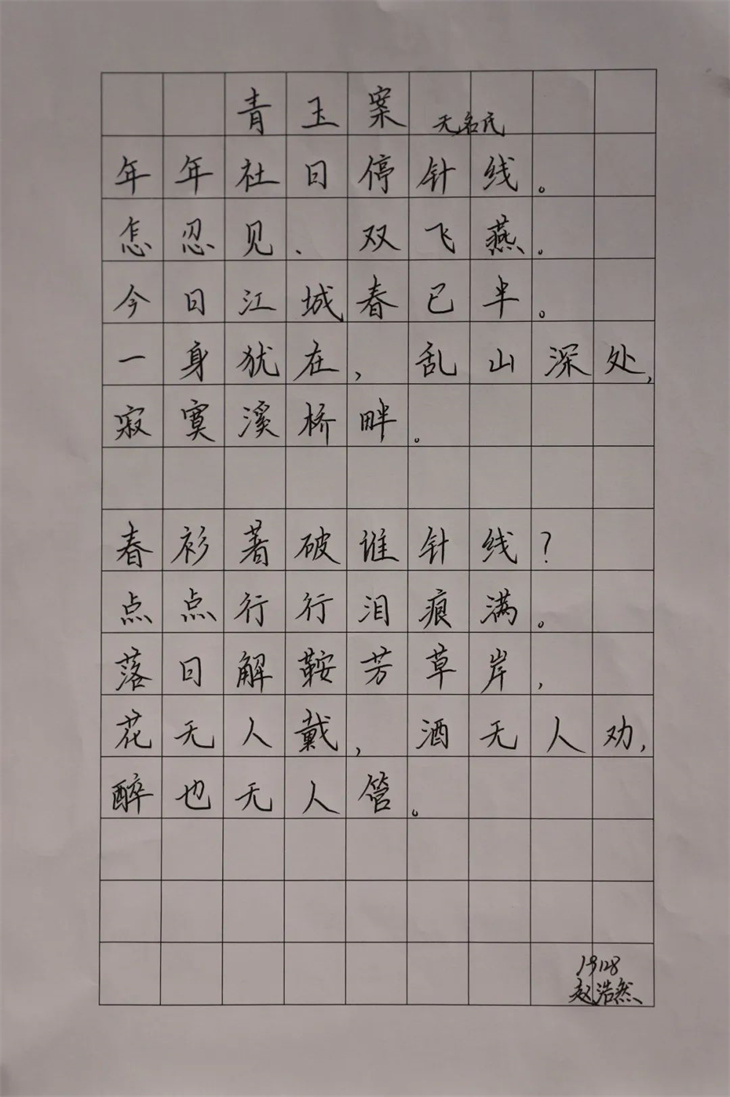 青玉案 无名氏
年年社日停针线。
怎忍见、双飞燕。
今日江城春已半。
一身犹在，乱山深处，
寂寞溪桥畔。
春衫著破谁针线？
点点行行泪痕满。
落日解鞍芳草岸，
花无人戴，酒无人劝，
醉也无人管。
19128
赵浩然